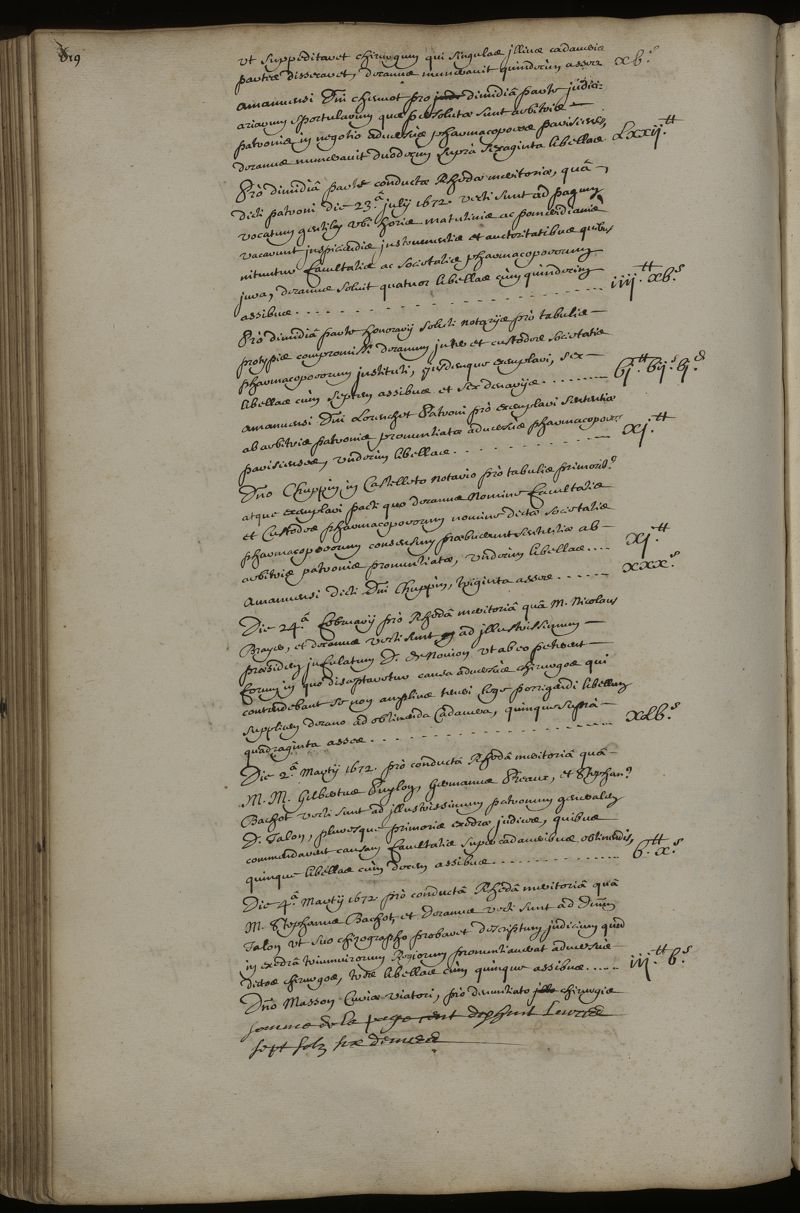 819
ut suppeditaret chirurgum qui singulas illius cadaveris
partes dissecaret, doranus numeravit quindecim asses xb.s
amanuensi Dni chenot pro dimidiâ parte judici-
ariarum sportularum quae persolutae sunt arbitris
patronis in negotio adversus pharmacopoeos parisienses,
doranus numeravit duodecim supra sexaginta libellas Lxxij.tt
Pro dimidiâ parte conductae Rhedae meritoriae, quâ
dicti patroni die 23.a julij 1672. vecti sunt ad pagum
vocatum gentilly ubi horis matutinis ac pomeridianis
vacarunt inspiciendis instrumentis et auctoritatibus quibus
nituntur facultatis ac societatis pharmacopoeorum
jura, doranus solvit quatuor libellas cum quindecim
assibus. iiij.tt xb.s
Pro dimidiâ parte honorarij soluti notarijs pro tabulis
protypis compromissi doranum inter et custodes societatis
pharmacopoeorum instituti, ejusdemque exemplari, sex
libellas cum septem assibus et sex denarijs bj.tt bij.s bj.d
amanuensi Dni Lorenchet Patroni pro exemplari sententiae
ab arbitris patronis pronuntiatae adversus pharmacopoeos
parisienses, undecim libellas. xj.tt
Dno Chuppin in Castelleto notario pro tabulis primoris
atque exemplari pacti quo doranus Nomine facultatis
et Custodes pharmacopoeorum nomine dictae societatis
pharmacopoeorum consensum praebuerunt sententiae ab
arbitris patronis pronuntiatae, undecim libellas xj.tt
Amanuensi dicti Dni Chuppin, triginta asses xxx.s
Die 24.a februarij pro Rhedâ meritoriâ quâ M. Nicolaus
Brayer, et doranus vecti sunt ad illustrissimum
praesidem infulatum D. de Novion ut ab eo peterent
forum in quo disceptaretur causa adversus chirurgos qui
contendebant se non amplius teneri lege porrigendi libellum
supplicem decano ad obtinenda Cadavera, quinque supra
quadraginta asses xLb.s
Die 2.a Martij 1672. pro conducta Rheda meritoriâ quâ
M. M. Gilbertus Puylon, Germanus Preaux, et Stephanus
Bachot vecti sunt ad illustrissimum patronum generalem
D. Talon, pluresque primoris exedrae judices, quibus
commendarent causam facultatis super cadaveribus obtinendis,
quinque libellas cum decem assibus b.tt x.s
Die 4.a Martij 1672 pro conductâ Rhedâ meritoriâ quâ
M. Stephanus Bachot et Doranus vecti sunt ad Dnum
Talon ut suo chirographo probaret descriptum judicium quod
in exedrâ triumvirorum Regiorum pronuntiaverat adversus
dictos chirurgos, tres libellas cum quinque assibus iij.tt b.s
Dno Masson Curiae viatori, pro denuntiato chirurgis
somme de la page cent dixhuit Livres
sept solz six deniers